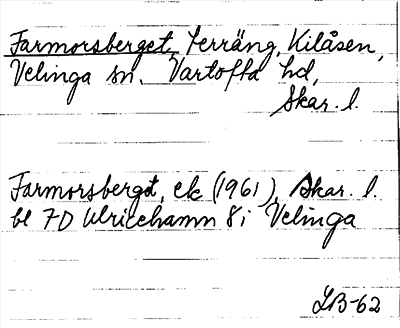 Farmorsberget, terräng, Kilåsen,
Velinga sn. Vartofta hd,
Skar. l.
Farmorsberget, ek (1961), Skar. l.
bl 7D Ulricehamn 8i Velinga
LB-62